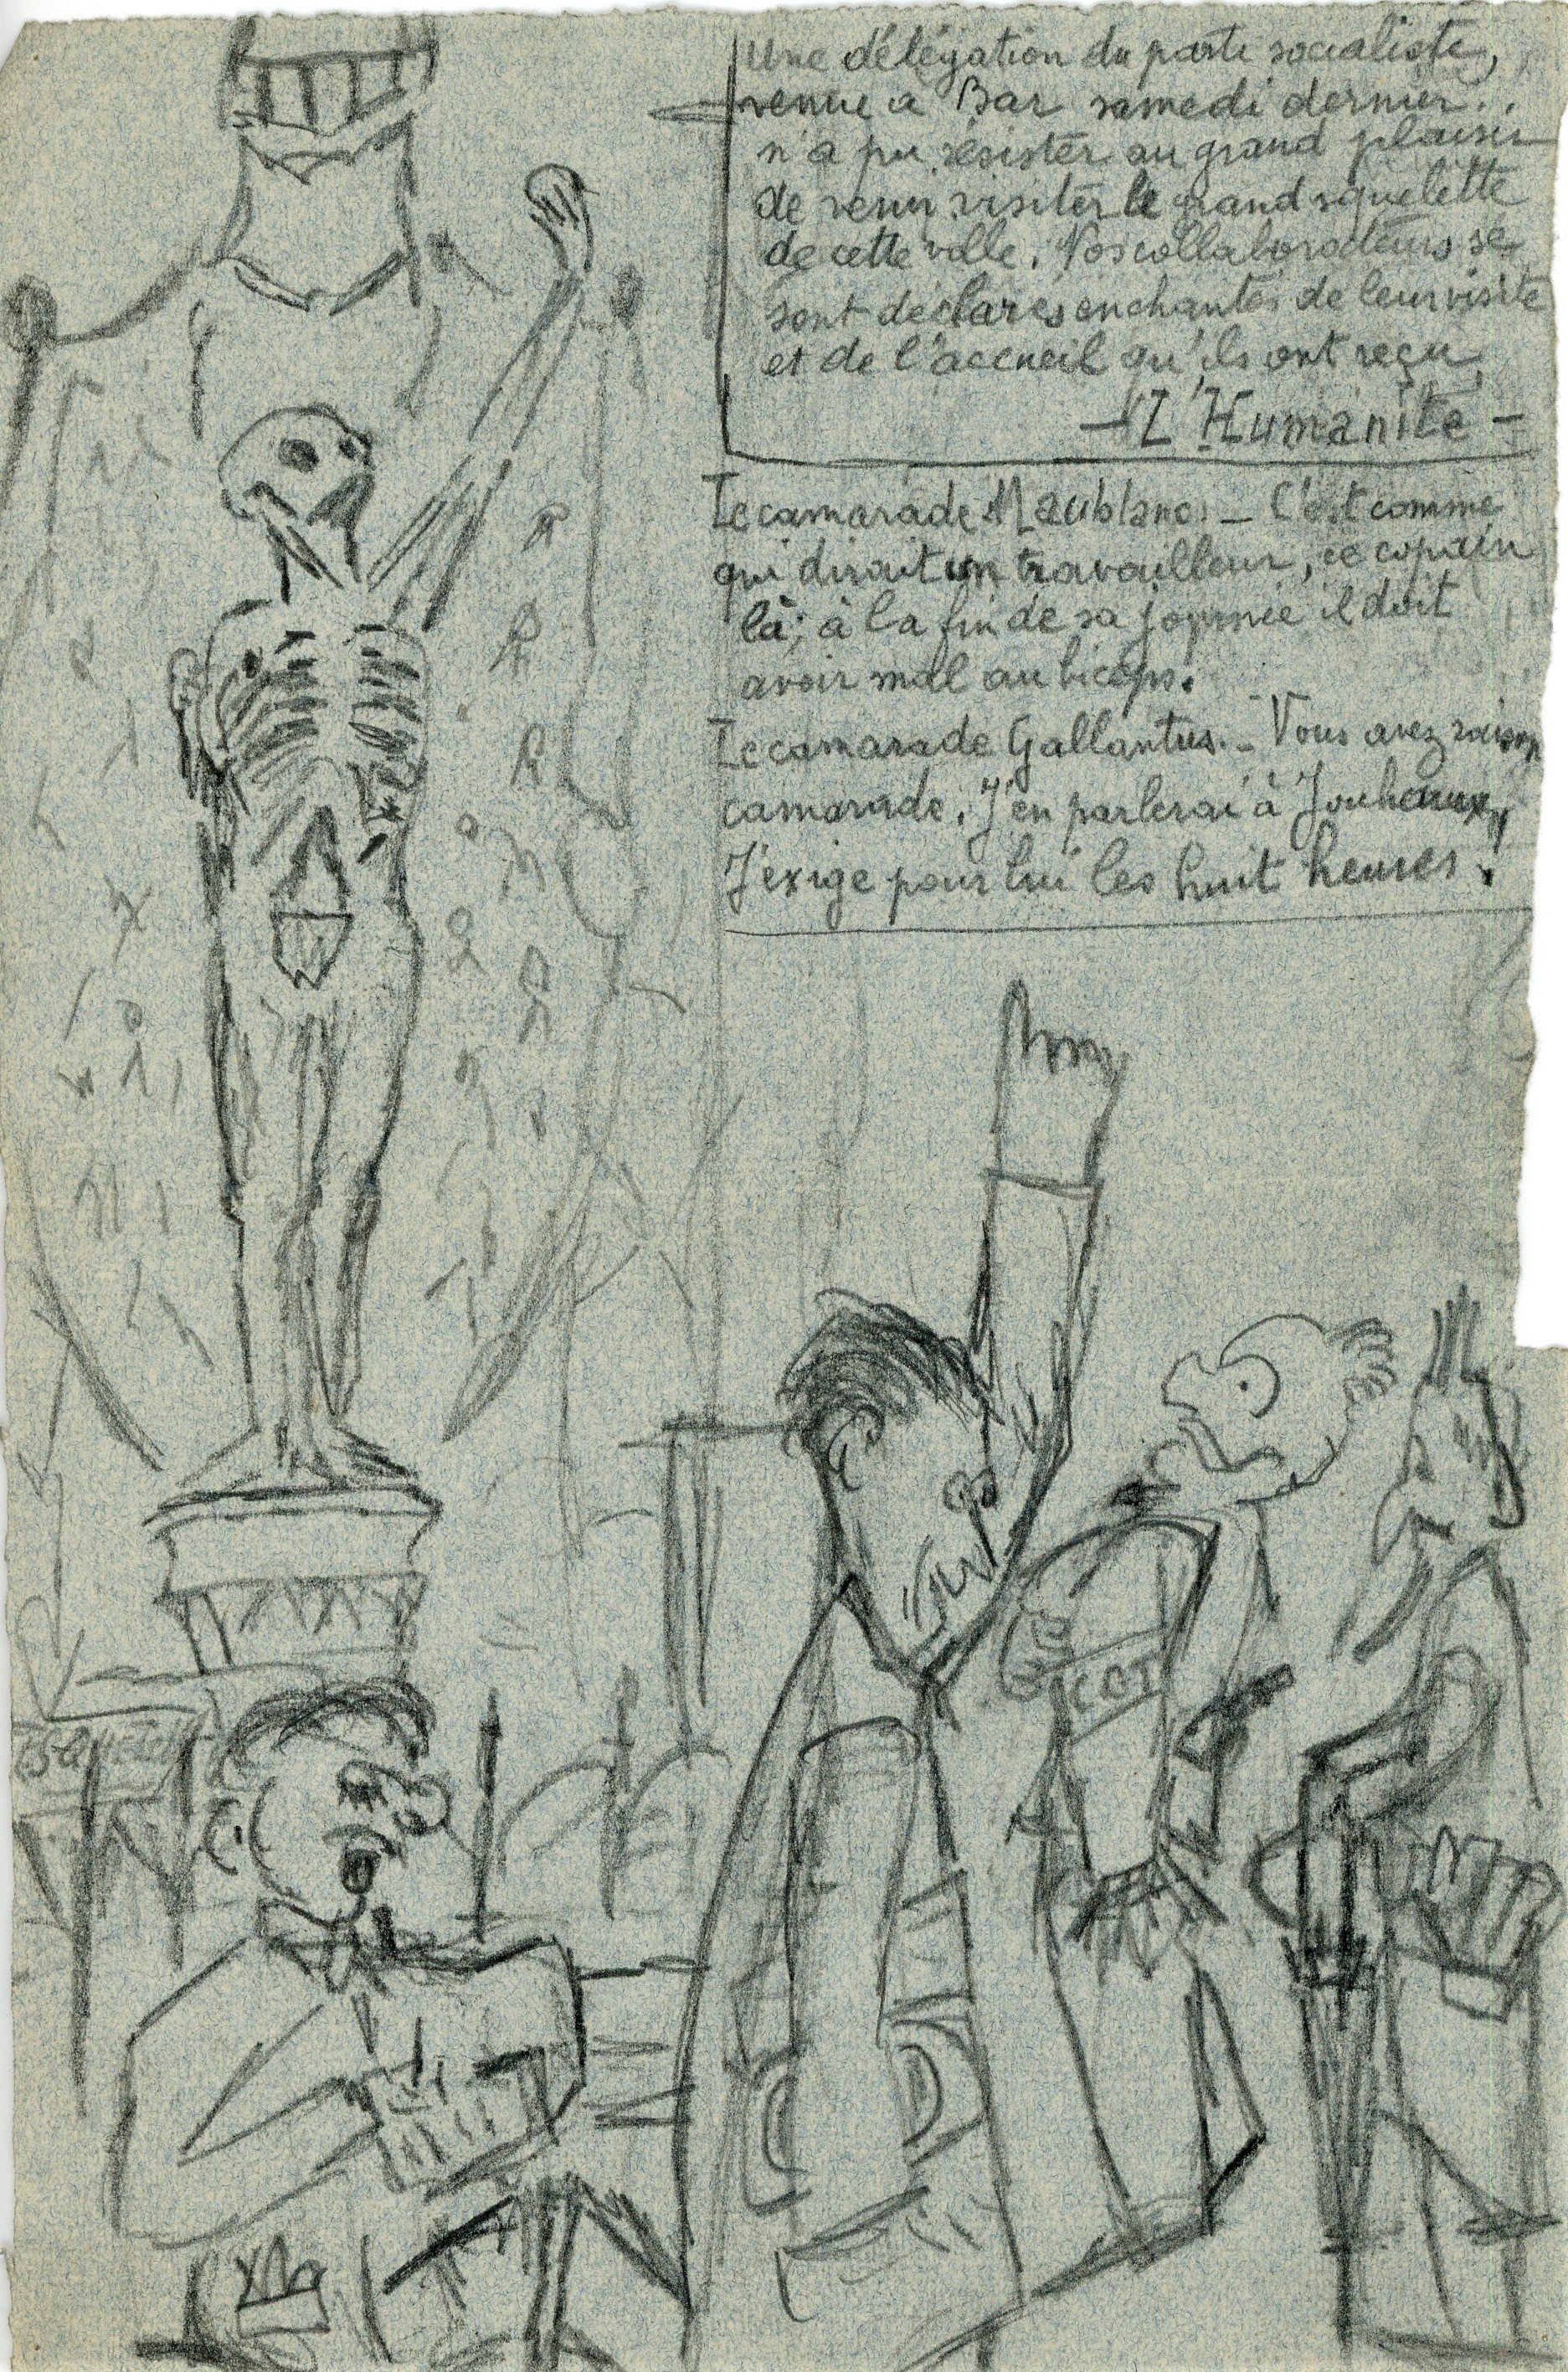 Une délégation du parti socialiste,
venue à Bar samedi dernier..
n'a pu résister au grand plaisir
de venir visiter le grand squelette
de cette ville. Nos collaborateurs se
sont déclarés enchantés de leur visite
et de l'accueil qu'ils ont reçu
- L'Humanité -
Le camarade Maublanc. _ C'est comme
qui dirait un travailleur, ce copain
là; à la fin de sa journée il doit
avoir mal au biceps.
Le camarade Gallantus. _ Vous avez raison
camarade. J'en parlerai à Jouheaux,
J'exige pour lui les huit heures.
CGT